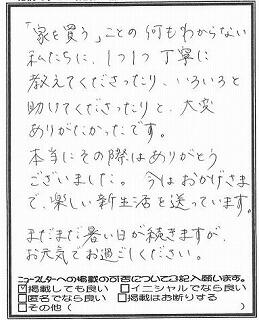 「家を買う」ことの何もわからない
私たちに、1つ1つ丁寧に
教えてくださったり、いろいろと
助けてくださったりと、大変
ありがたかったです。
本当にその際はありがとう
ございました。今はおかげさま
で、楽しい新生活を送っています。
まだまだ暑い日が続きますが、
お元気でお過ごしください。
ニュースレターへの掲載の可否についてご記入願います。
☑掲載しても良い □イニシャルでなら良い
□匿名でなら良い □掲載はお断りする
□その他( )